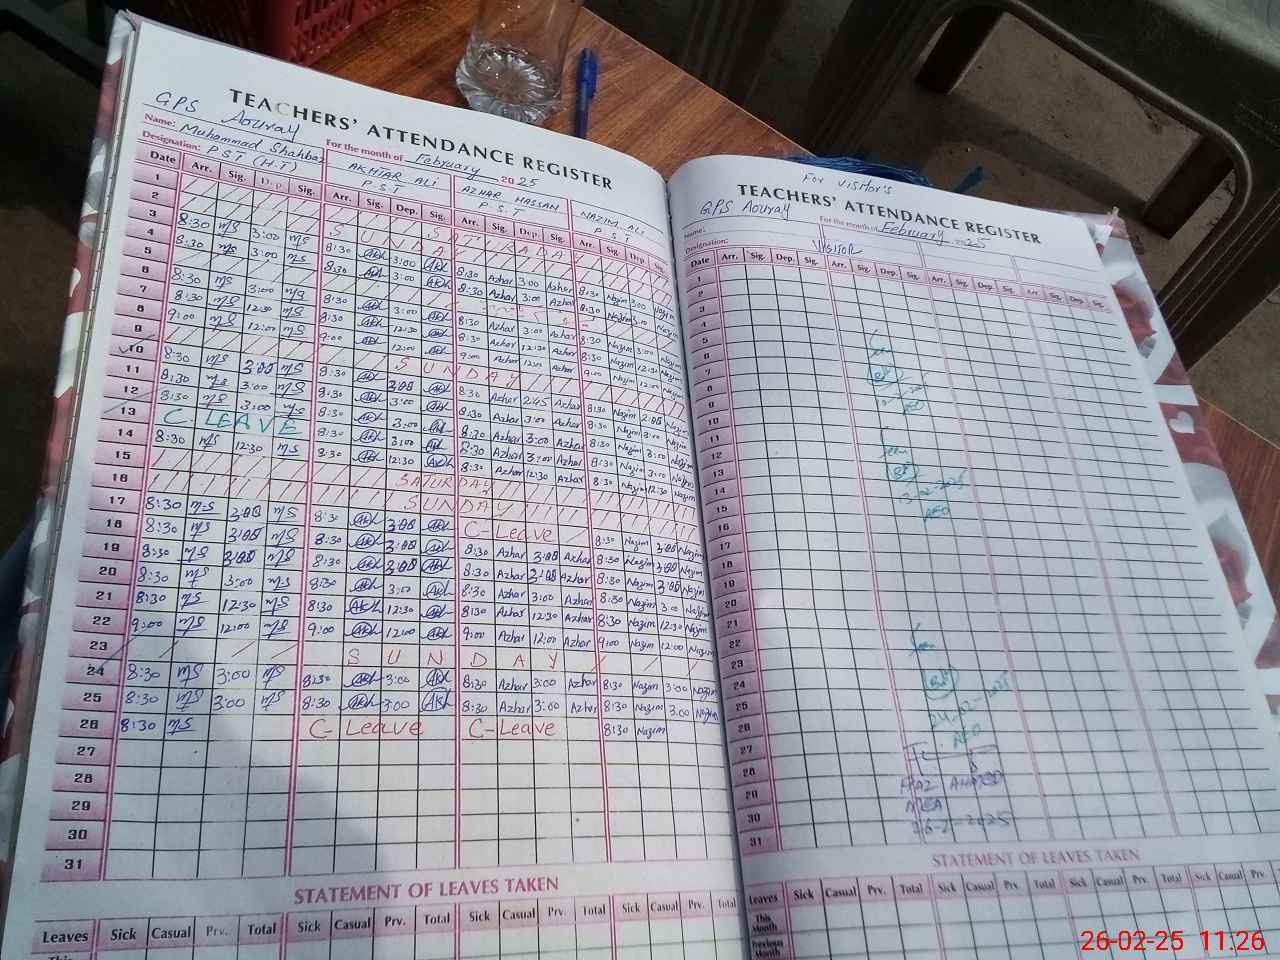 GPS Aouray
TEACHERS' ATTENDANCE REGISTER
Name: Muhammad Shahbaz
For the month of February 2025
Designation: PST (H.T)
AKHTAR ALI
P.S.T
AZHAR HASSAN
P.S.T
NAZIM ALI
P.S.T
Date Arr. Sig. Dep. Sig. Arr. Sig. Dep. Sig. Arr. Sig. Dep. Sig. Arr. Sig. Dep. Sig.
1
2 SUNDAY
3 8:30 MS 3:00 MS 8:30 Akh 3:00 Akh 8:30 Azhar 3:00 Azhar 8:30 Nazim 3:00 Nazim
4 8:30 MS 3:00 MS 8:30 Akh 3:00 Akh 8:30 Azhar 3:00 Azhar 8:30 Nazim 3:00 Nazim
5
6 8:30 MS 3:00 MS 8:30 Akh 3:00 Akh 8:30 Azhar 3:00 Azhar 8:30 Nazim 3:00 Nazim
7 8:30 MS 12:30 MS 8:30 Akh 12:30 Akh 8:30 Azhar 12:30 Azhar 8:30 Nazim 12:30 Nazim
8 9:00 MS 12:00 MS 9:00 Akh 12:00 Akh 9:00 Azhar 12:00 Azhar 9:00 Nazim 12:00 Nazim
9 SUNDAY
10 8:30 MS 3:00 MS 8:30 Akh 3:00 Akh 8:30 Azhar 2:45 Azhar 8:30 Nazim Nazim
11 8:30 MS 3:00 MS 8:30 Akh 3:00 Akh 8:30 Azhar 3:00 Azhar 8:30 Nazim 3:00 Nazim
12 8:30 MS 3:00 MS 8:30 Akh 3:00 Akh 8:30 Azhar 3:00 Azhar 8:30 Nazim 3:00 Nazim
13 C. LEAVE 8:30 Akh 3:00 Akh 8:30 Azhar 3:00 Azhar 8:30 Nazim 3:00 Nazim
14 8:30 MS 12:30 MS 8:30 Akh 12:30 Akh 8:30 Azhar 12:30 Azhar 8:30 Nazim 12:30 Nazim
15 SATURDAY
16 SUNDAY
17 8:30 MS 3:00 MS 8:30 Akh 3:00 Akh C-Leave 8:30 Nazim 3:00 Nazim
18 8:30 MS 3:00 MS 8:30 Akh 3:00 Akh 8:30 Azhar 3:00 Azhar 8:30 Nazim 3:00 Nazim
19 8:30 MS 3:00 MS 8:30 Akh 3:00 Akh 8:30 Azhar 3:00 Azhar 8:30 Nazim 3:00 Nazim
20 8:30 MS 3:00 MS 8:30 Akh 3:00 Akh 8:30 Azhar 3:00 Azhar 8:30 Nazim 3:00 Nazim
21 8:30 MS 12:30 MS 8:30 Akh 12:30 Akh 8:30 Azhar 12:30 Azhar 8:30 Nazim 12:30 Nazim
22 9:00 MS 12:00 MS 9:00 Akh 12:00 Akh 9:00 Azhar 12:00 Azhar 9:00 Nazim 12:00 Nazim
23 SUNDAY
24 8:30 MS 3:00 MS 8:30 Akh 3:00 Akh 8:30 Azhar 3:00 Azhar 8:30 Nazim 3:00 Nazim
25 8:30 MS 3:00 MS 8:30 Akh 3:00 Akh 8:30 Azhar 3:00 Azhar 8:30 Nazim 3:00 Nazim
26 8:30 MS C-Leave C-Leave 8:30 Nazim
27
28
29
30
31
STATEMENT OF LEAVES TAKEN
Leaves Sick Casual Prv. Total Sick Casual Prv. Total Sick Casual Prv. Total Sick Casual Prv. Total
This
For Visitor's
TEACHERS' ATTENDANCE REGISTER
GPS Aouray
Name:
For the month of February 2025
Designation:
Visitor
Date Arr. Sig. Dep. Sig. Arr. Sig. Dep. Sig. Arr. Sig. Dep. Sig. Arr. Sig. Dep. Sig.
1
2
3
4
5
6
7
8
9
10
11
12
13
14
15
16
17
18
19
20
21
22
23
24
25
26
27
28
29
30
31
Seen
AEO
Seen
13-02-2025
AEO
Seen
24-02-2025
AEO
AHMED
MEA
26-2-2025
STATEMENT OF LEAVES TAKEN
Leaves Sick Casual Prv. Total Sick Casual Prv. Total Sick Casual Prv. Total Sick Casual Prv.
This Month
Previous Month
26-02-25 11:26